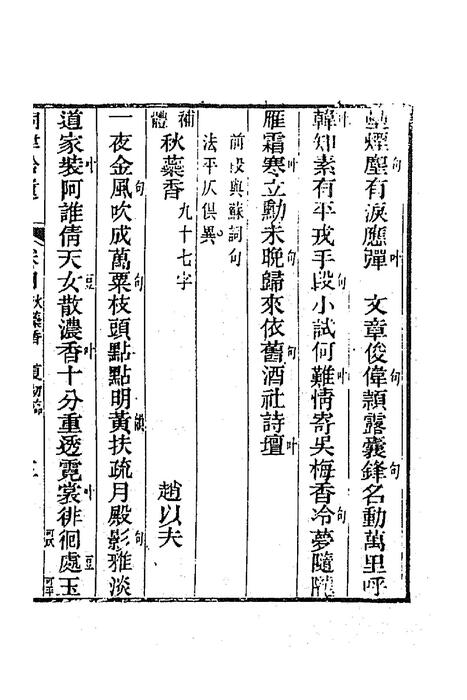 煙塵有淚應彈　文章俊偉穎露囊鋒名動萬里呼
韓知素有平戎手段小試何難情寄吳梅香冷夢隨隴
雁霜寒立勳未晚歸來依舊酒社詩壇
前段與蘇詞句
法平仄俱異
補體　秋蘂香　九十七字　趙以夫
一夜金風吹成萬粟枝頭點點明黃扶疏月殿影雅淡
道家裝阿誰倩天女散濃香十分重透霓裳徘徊處玉